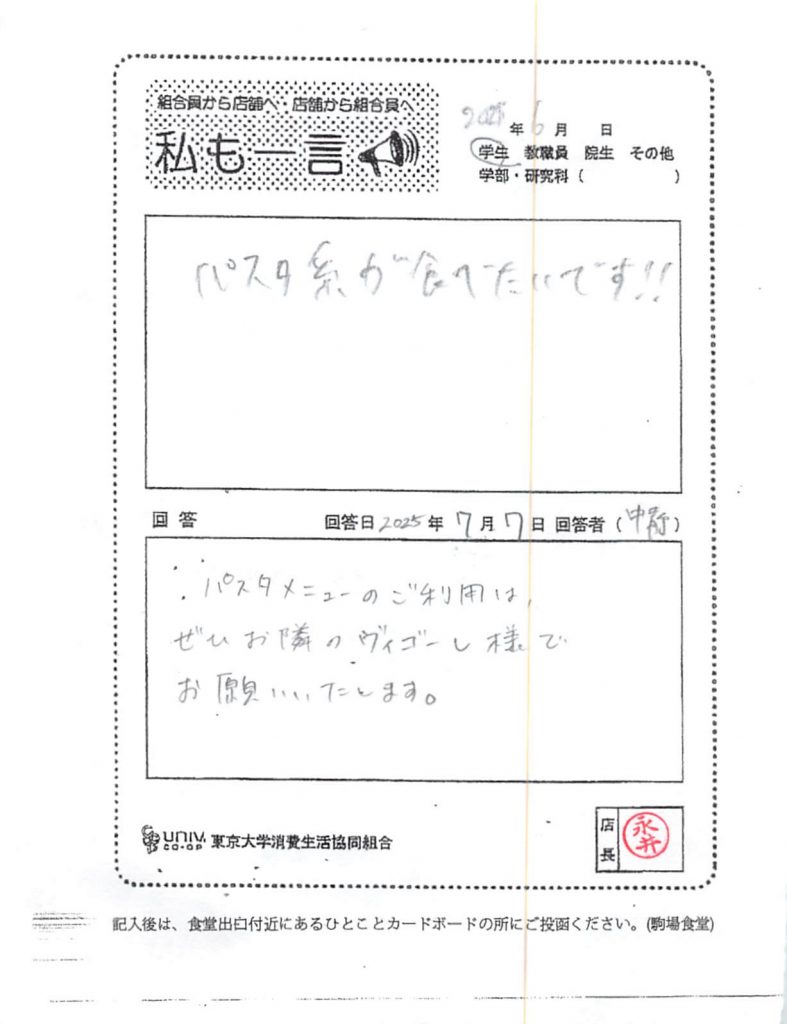 組合員から店舗へ・店舗から組合員へ
私も一言
2025年6月 日
学生 教職員 院生 その他
学部・研究科( )
パスタ系が食べたいです!!
回答 回答日2025年7月7日 回答者( )
パスタメニューのご利用は、
ぜひお隣のヴィゴーレ様で
お願いいたします。
UNIV. CO-OP 東京大学消費生活協同組合
店長 永井
記入後は、食堂出口付近にあるひとことカードボードの所にご投函ください。(駒場食堂)